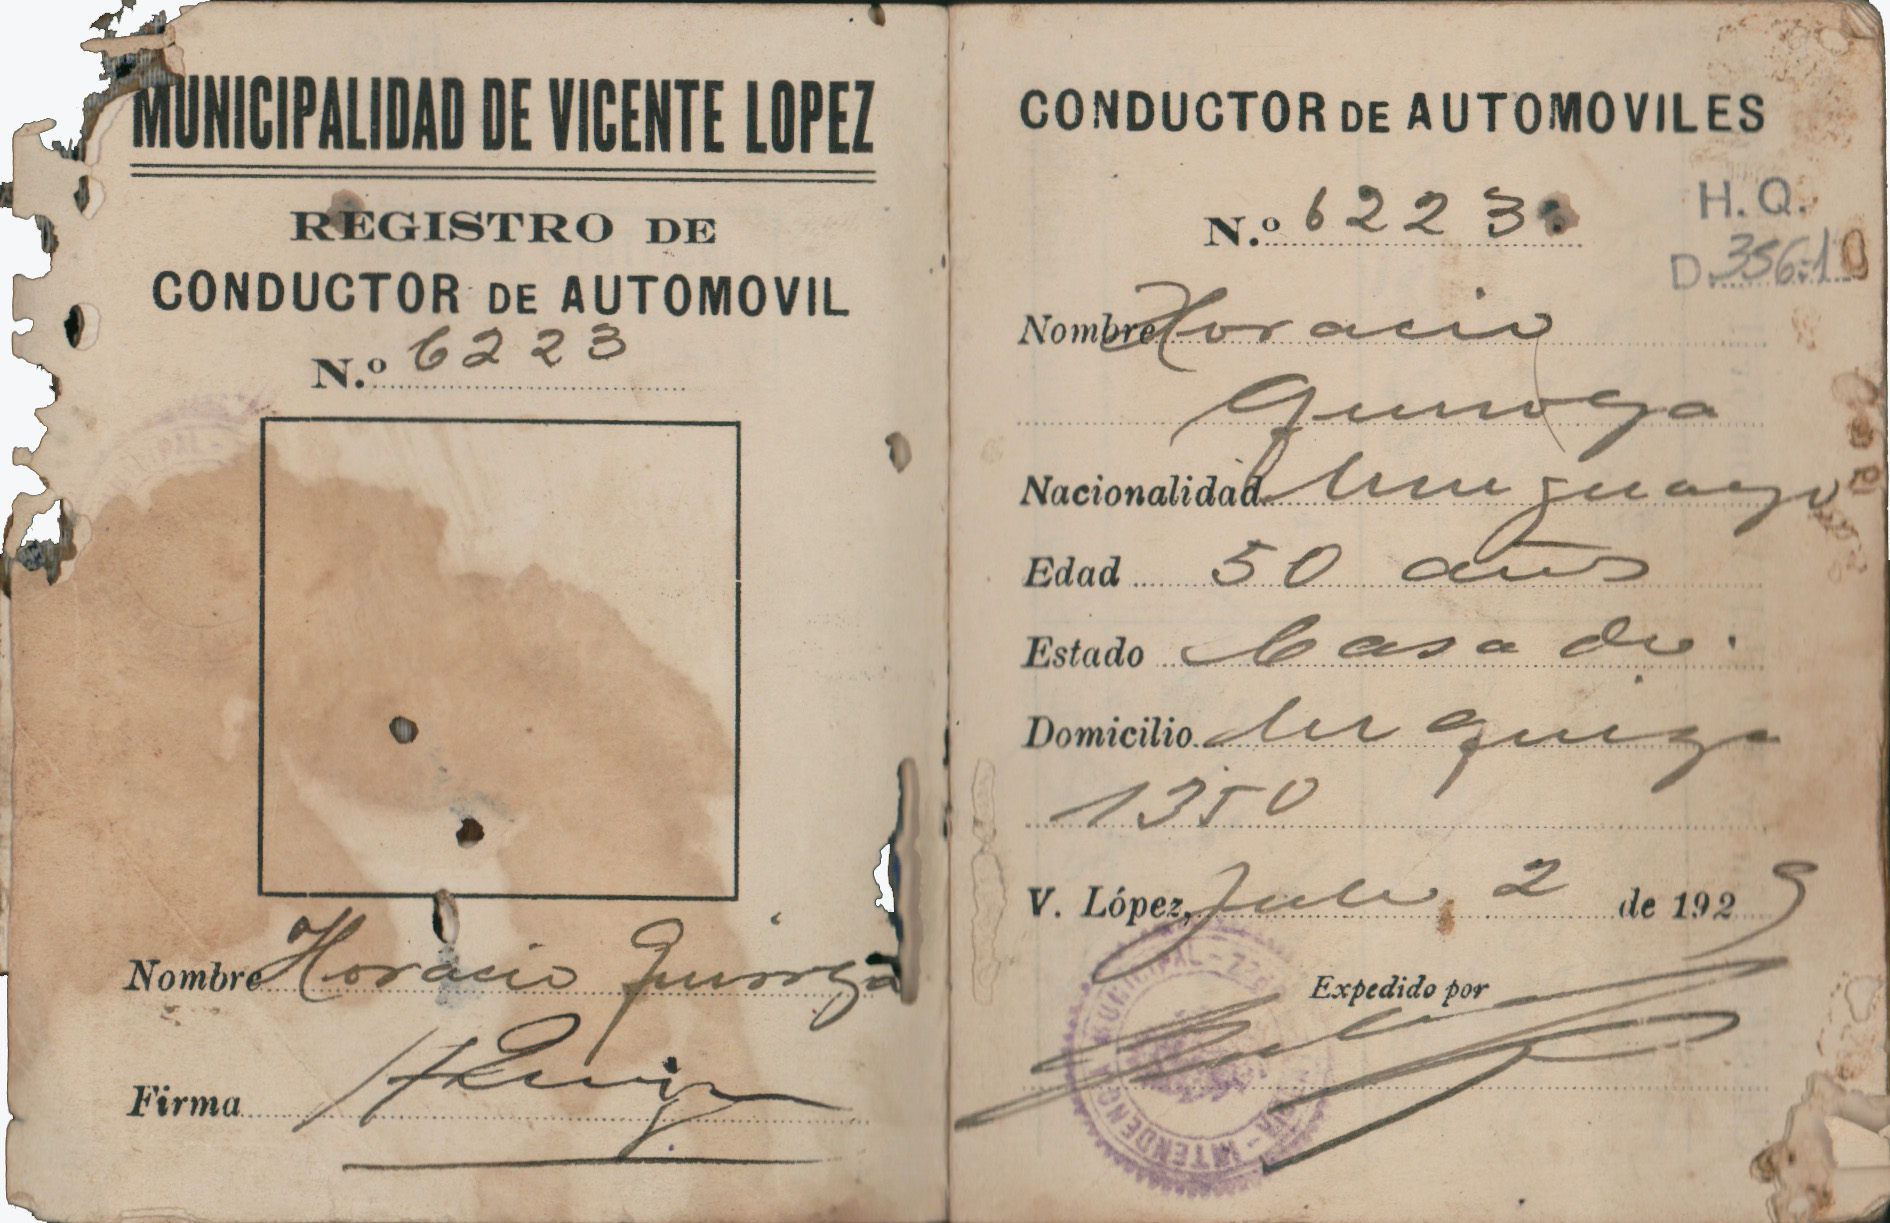 MUNICIPALIDAD DE VICENTE LOPEZ
REGISTRO DE
CONDUCTOR DE AUTOMOVIL
N.º 6223
Nombre Horacio Quiroga
Firma HQuiroga
CONDUCTOR DE AUTOMOVILES
N.º 6223
H. Q.
D. 356.1
Nombre Horacio
Quiroga
Nacionalidad Uruguayo
Edad 50 años
Estado Casado.
Domicilio Urquiza
1350
V. López, Julio 2 de 1929
Expedido por
MUNICIPAL - INTENDENCIA